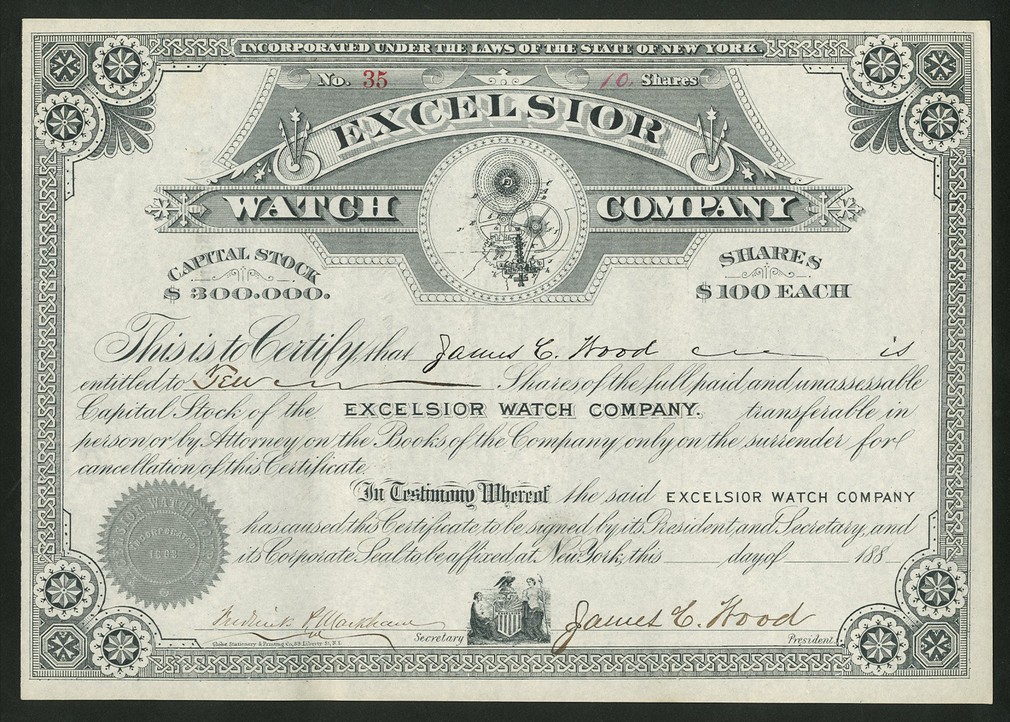 INCORPORATED UNDER THE LAWS OF THE STATE OF NEW YORK.
No. 35 10. Shares
EXCELSIOR
WATCH COMPANY
CAPITAL STOCK
$ 300.000.
SHARES
$ 100 EACH
This is to Certify that James C. Wood is
entitled to Ten Shares of the full paid and unassessable
Capital Stock of the EXCELSIOR WATCH COMPANY. transferable in
person or by Attorney on the Books of the Company only on the surrender for
cancellation of this Certificate.
In Testimony Whereof the said EXCELSIOR WATCH COMPANY
has caused this Certificate to be signed by its President and Secretary, and
its Corporate Seal to be affixed at New York, this day of 188
EXCELSIOR WATCH CO.
INCORPORATED
Fredrick P. Markham
Secretary
Globe Stationery & Printing Co, 89 Liberty St, N.Y.
James C. Wood
President.